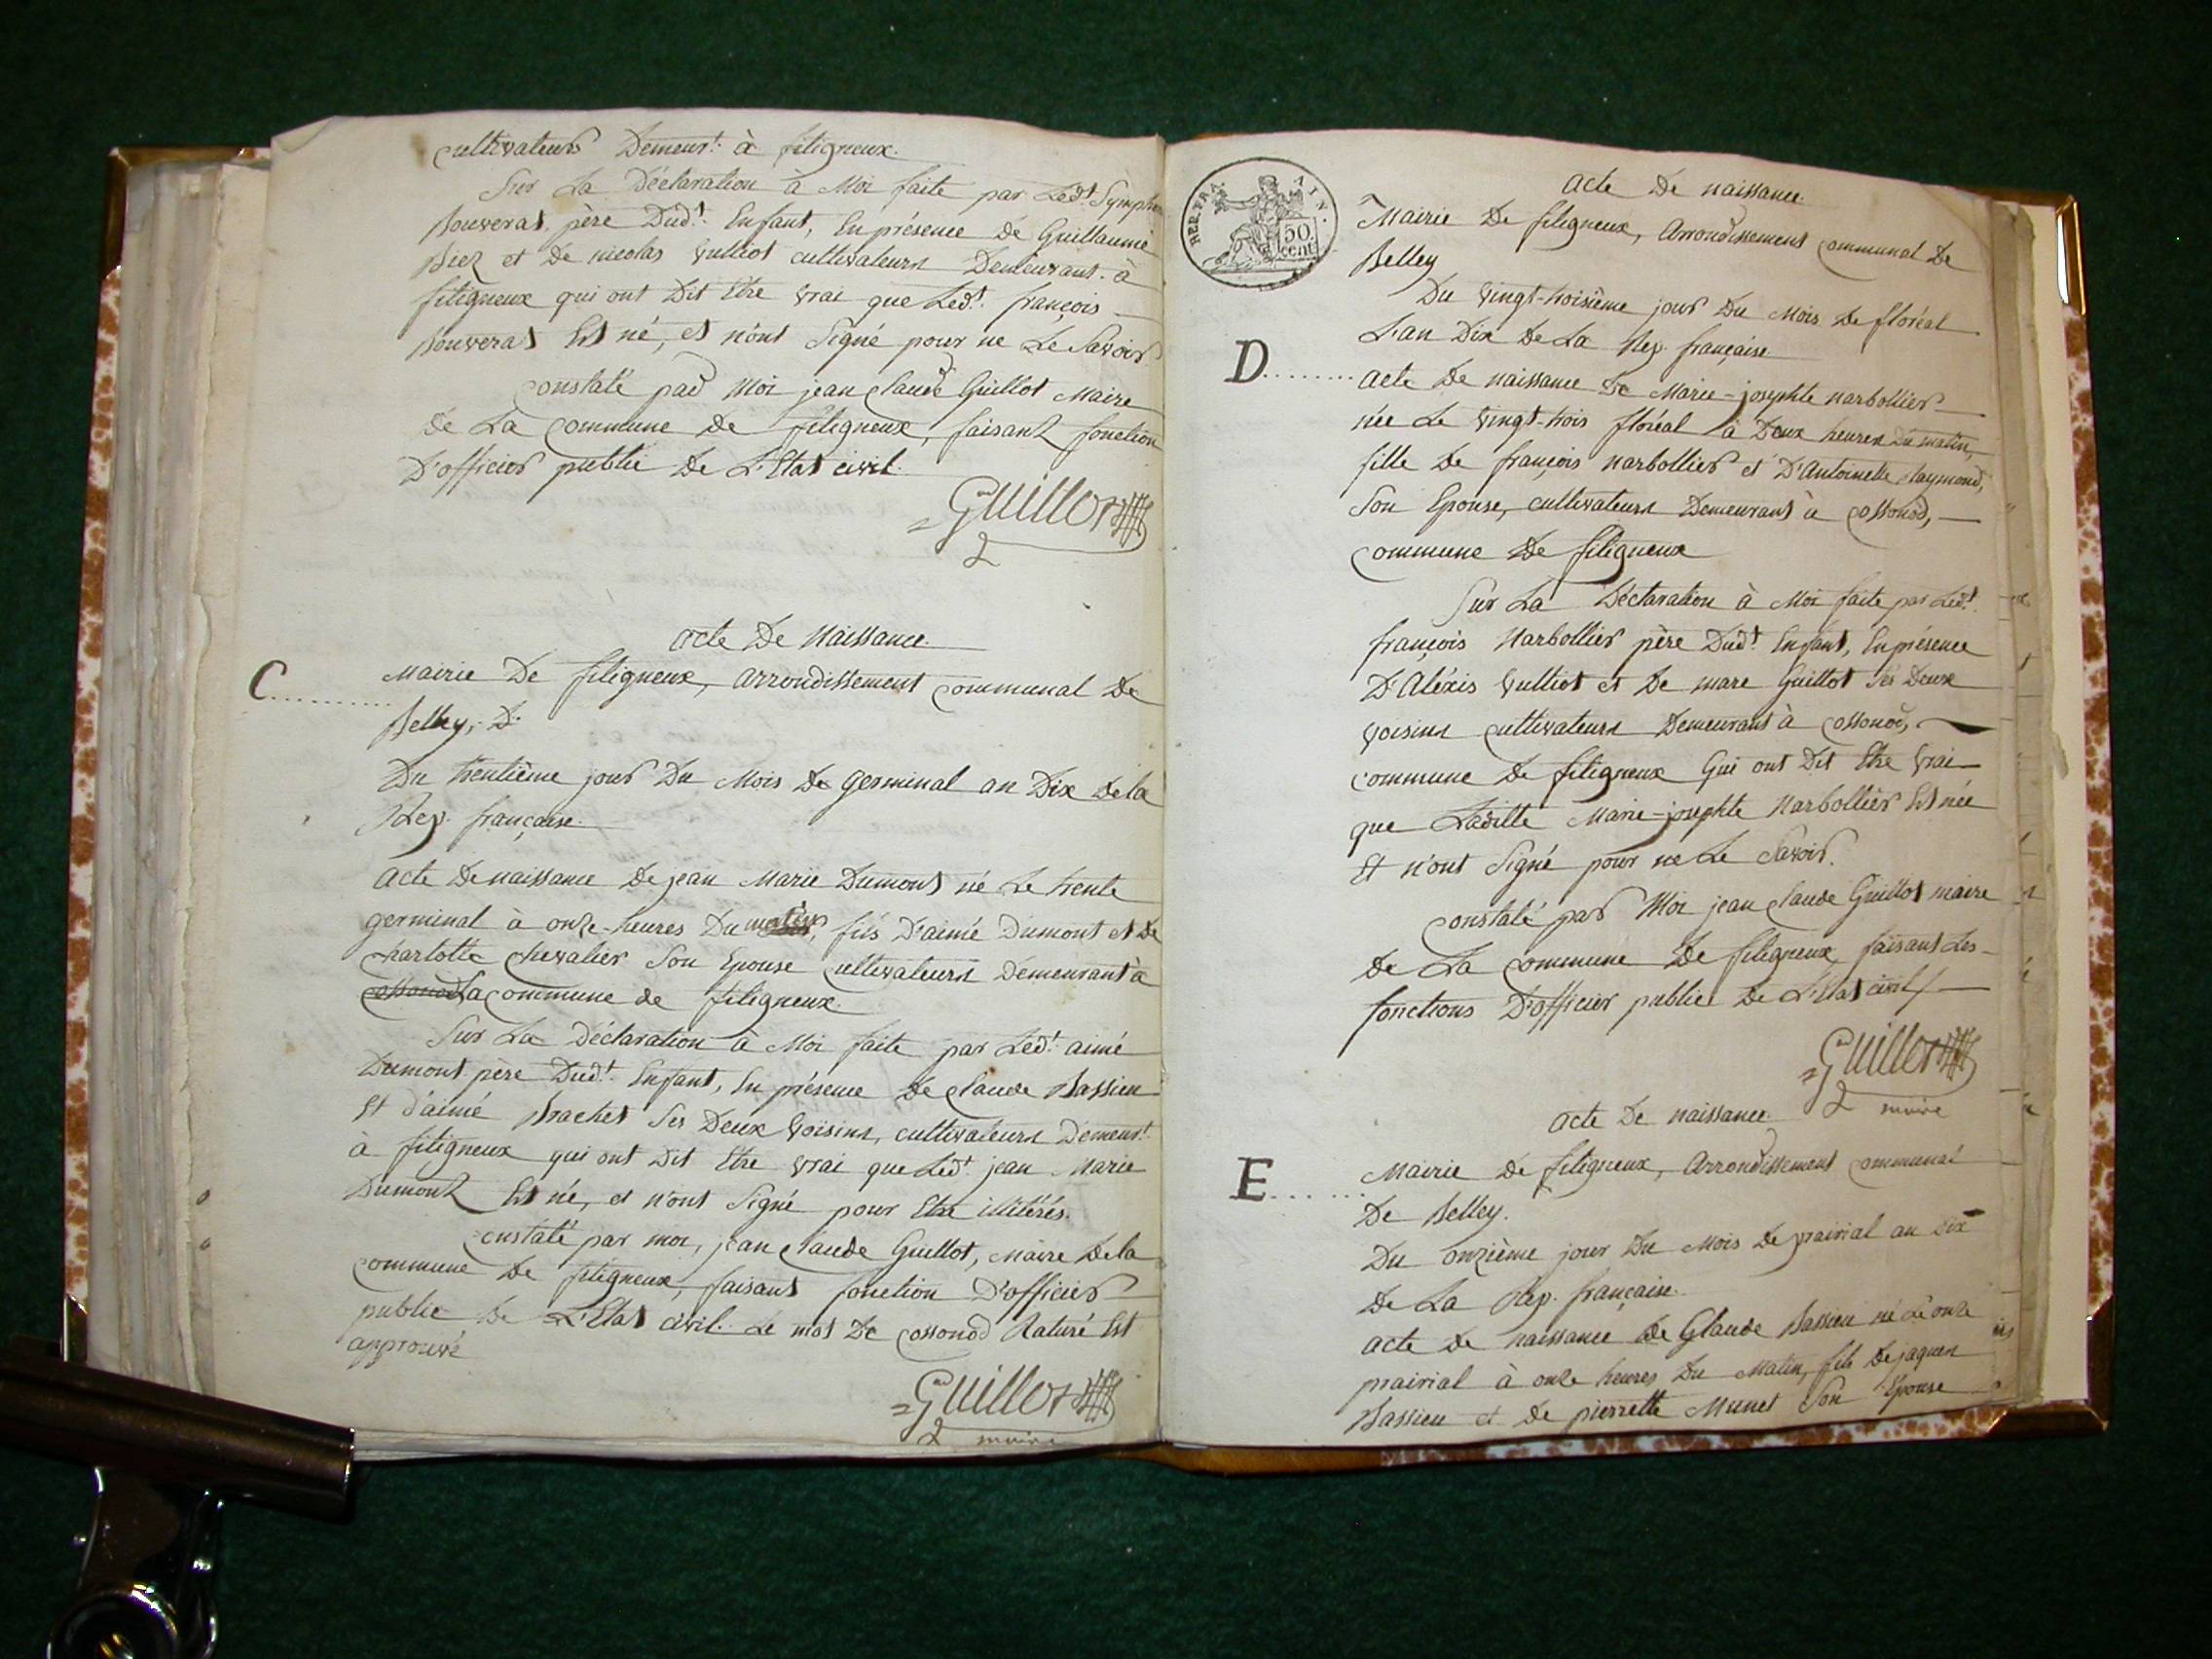 cultivateurs Demeurt. à filigneux.
Sur La Déclaration à Moi faite par Ledt. Symph
Bouverat, père Dudt. Enfant, En présence de Guillaume
Biez et De nicolas Vulliot cultivateurs Demeurant à
filigneux qui ont Dit Etre vrai que Ledt. françois
Bouverat Est né, et n'ont Signé pour ne Le Savoir
constaté par Moi jean claude Guillot Maire
de La commune De filigneux, faisant fonction
D'officier public De L'Etat civil.
Guillot
acte De Naissance.
C..........
Mairie De filigneux, arrondissement communal De
Belley, D.
Du trentième jour Du Mois De germinal an Dix De la
Rep. française.
acte De naissance De jean Marie Dumont né Le trente
germinal à onze heures Du matin, fils D'aimé Dumont et De
charlotte chevalier Son Epouse cultivateurs Demeurant à
cossonod La commune de filigneux.
Sur La Déclaration à Moi faite par Ledt. aimé
Dumont père Dudt. Enfant, En présence De claude Bassieu
Et d'aimé Brachet Ses Deux Voisins, cultivateurs Demeurt.
à filigneux qui ont Dit Etre vrai que Ledt. jean Marie
Dumont Est né, et n'ont Signé pour Etre illitérés.
constaté par moi, jean claude Guillot, Maire De la
commune De filigneux, faisant fonction D'officier
public De L'Etat civil. Le mot De cossonod Raturé Est
approuvé
Guillot
maire
REP. FRA. AIN.
50 cent.
acte De naissance.
Mairie De filigneux, Arrondissement communal De
Belley
Du Vingt-troisième jour Du Mois De floréal
L'an Dix De La Rep. française.
D........
acte De naissance De Marie-josephte Narbollier
née Le Vingt-trois floréal à Deux heures Du matin,
fille De françois Narbollier et D'Antoinette Raymond,
Son Epouse, cultivateurs Demeurant à cossonod,
commune De filigneux
Sur La Déclaration à Moi faite par Ledt.
françois Narbollier père Dudt. Enfant, En présence
D'Aléxis Vulliot et De marc Guillot Ses Deux
Voisins cultivateurs Demeurant à cossonod,
commune De filigneux Qui ont Dit Etre Vrai
que Laditte Marie-josephte Narbollier Est née
Et n'ont Signé pour ne Le Savoir.
constaté par Moi jean claude Guillot maire
De La commune De filigneux, faisant Les
fonctions D'officier public De L'Etat civil
Guillot
maire
acte De naissance.
E........
Mairie De filigneux, Arrondissement communal
De Belley.
Du onzième jour Du Mois De prairial an Dix
De La Rép. française.
acte De naissance De Glaude Bassieu né Le onze
prairial à onze heures Du Matin, fils De jaques
Bassieu et De pierrette Munet Son Epouse